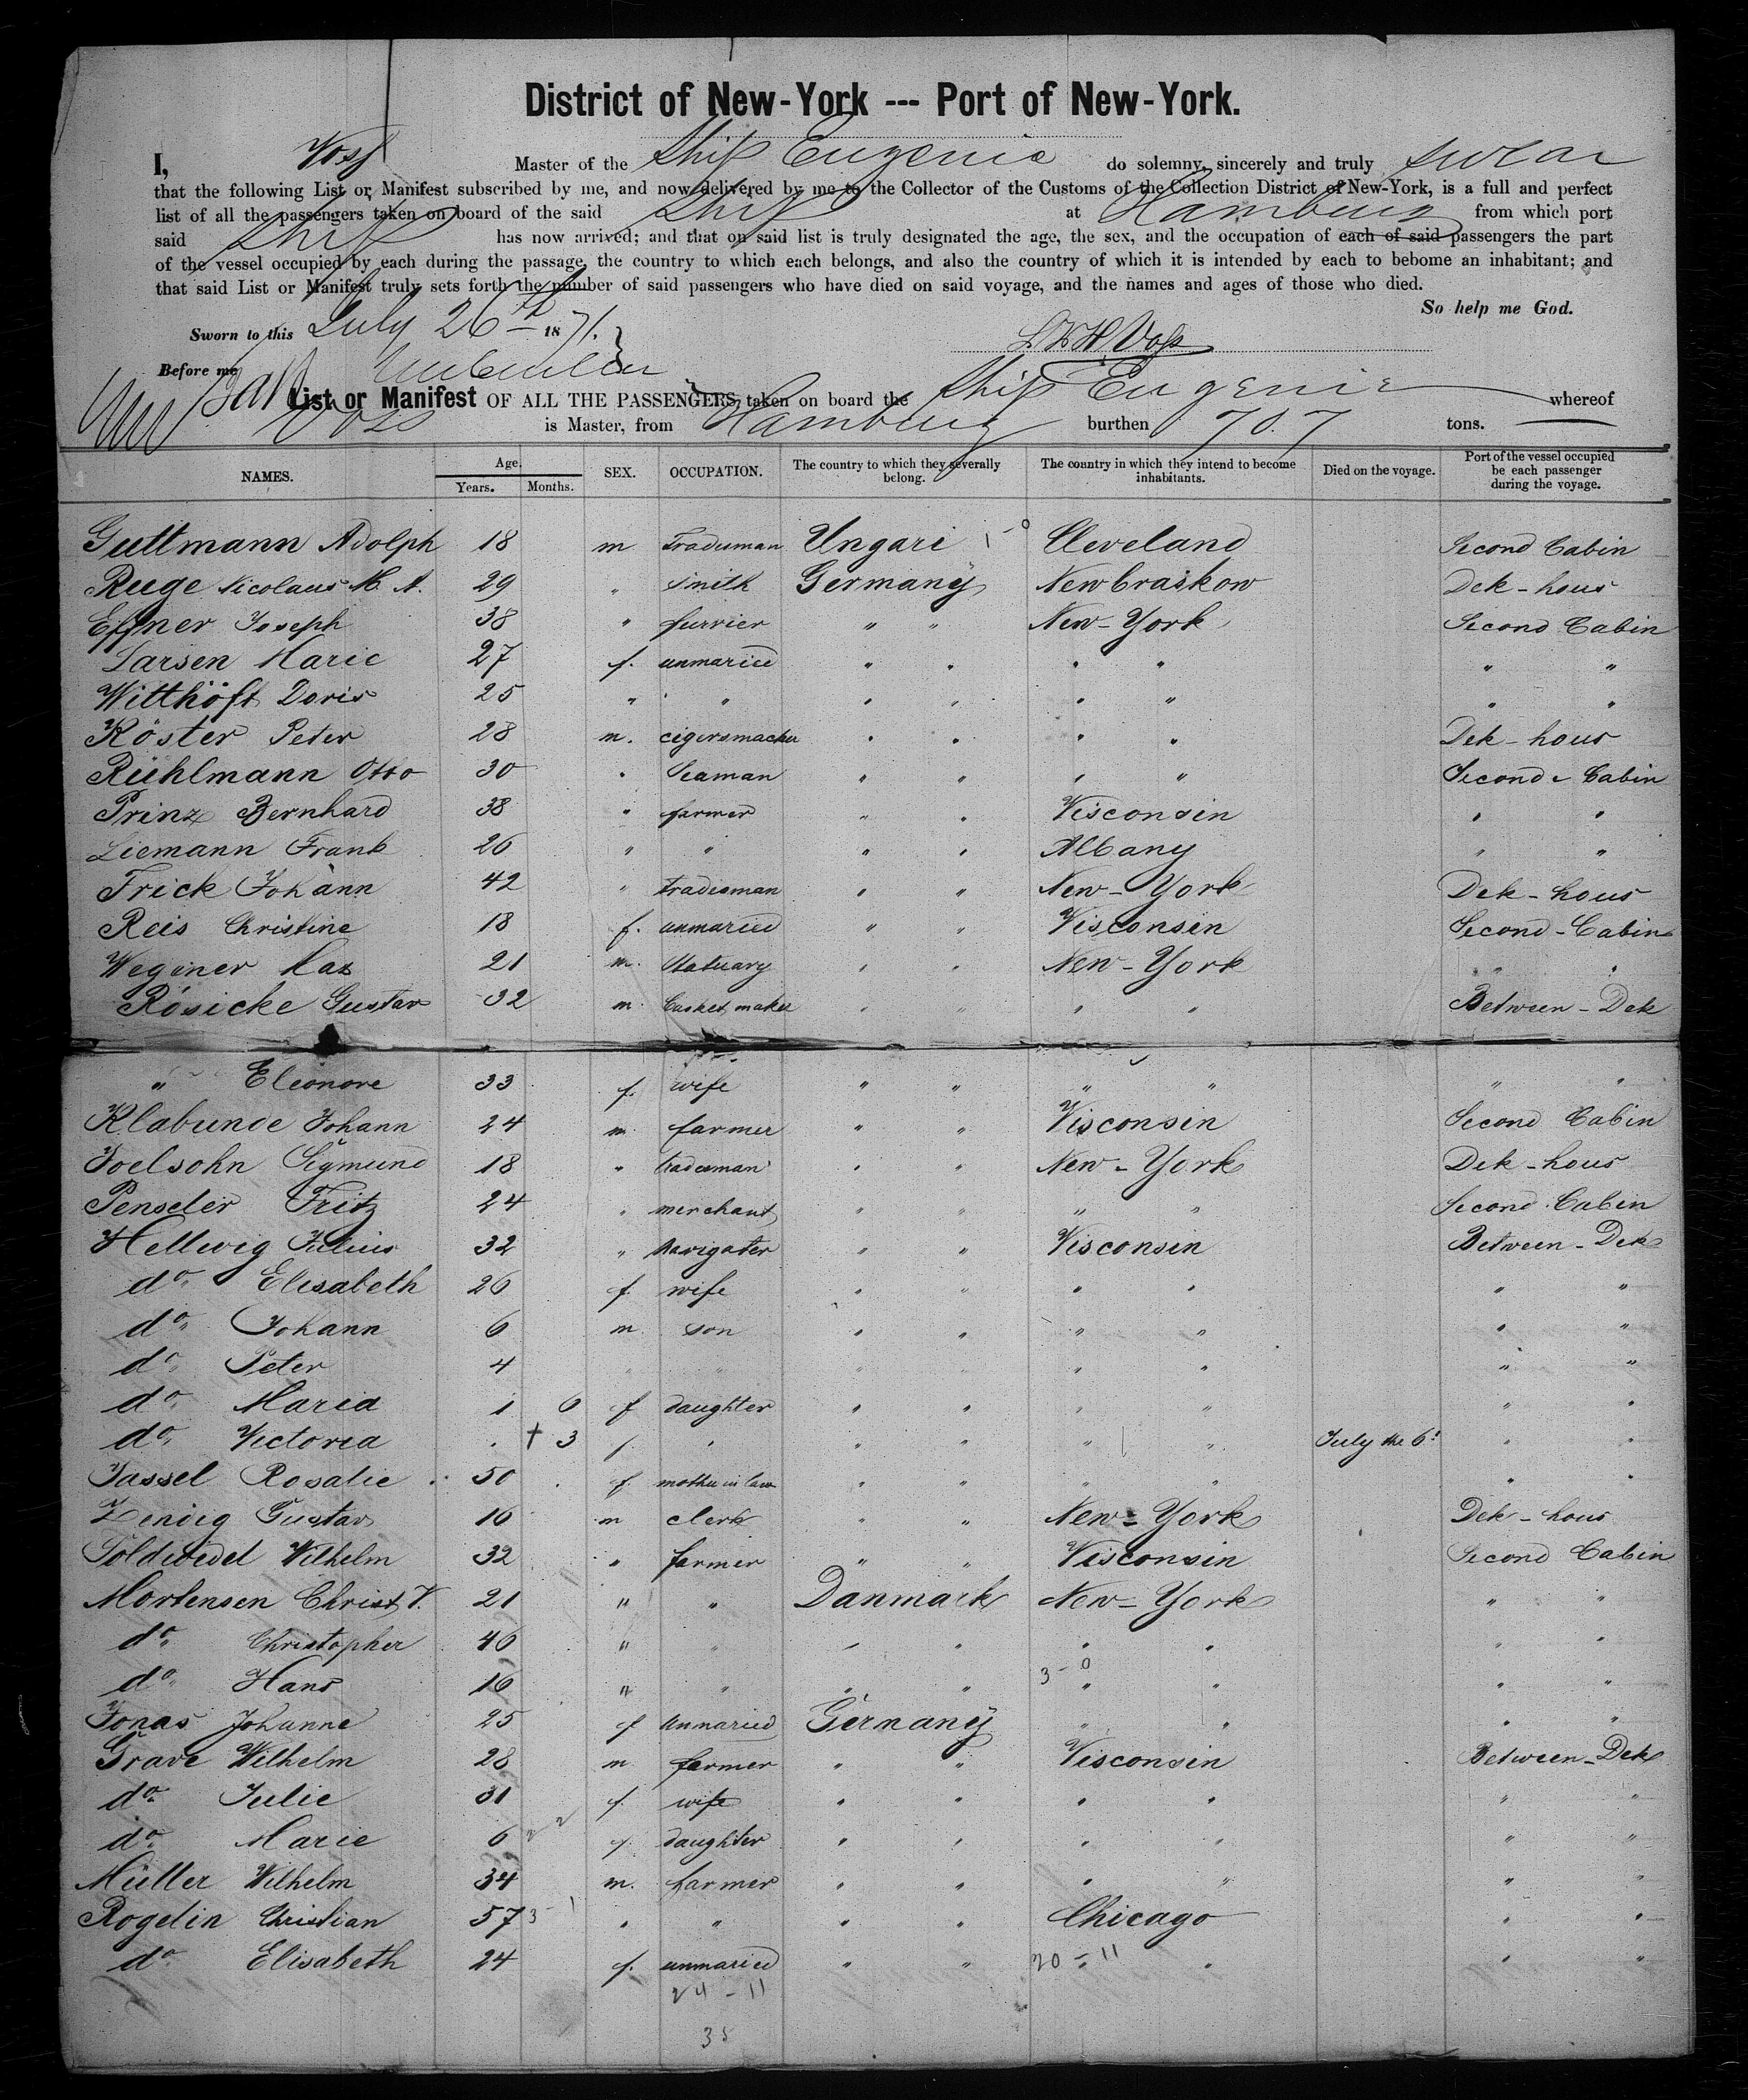 District of New-York --- Port of New-York.
I, Voss Master of the Ship Eugenie do solemny, sincerely and truly swear
that the following List or Manifest subscribed by me, and now delivered by me to the Collector of the Customs of the Collection District of New-York, is a full and perfect
list of all the passengers taken on board of the said Ship at Hamburg from which port
said Ship has now arrived; and that on said list is truly designated the age, the sex, and the occupation of each of said passengers the part
of the vessel occupied by each during the passage, the country to which each belongs, and also the country of which it is intended by each to bebome an inhabitant; and
that said List or Manifest truly sets forth the number of said passengers who have died on said voyage, and the names and ages of those who died.
So help me God.
Sworn to this July 26th 1871.
Voss
Before me
List or Manifest OF ALL THE PASSENGERS taken on board the Ship Eugenie whereof
Voss is Master, from Hamburg burthen 707 tons.
NAMES. Age. Years. Months. SEX. OCCUPATION. The country to which they severally belong. The country in which they intend to become inhabitants. Died on the voyage. Port of the vessel occupied be each passenger during the voyage.
Guttmann Adolph 18 m Tradesman Ungari Cleveland Second Cabin
Ruge Nicolaus M. A. 29 " Smith Germany Newbraskow Dek-hous
Effner Joseph 38 " furrier " " New-York Second Cabin
Larsen Marie 27 f. unmaried " " " " " "
Witthöft Doris 25 " " " " " " " "
Köster Peter 28 m. cigersmacker " " " " Dek-hous
Rühlmann Otto 30 " Seaman " " " " Second-Cabin
Prinz Bernhard 38 " farmer " " Visconsin " "
Liemann Frank 26 " " " " Albany " "
Frick Johann 42 " tradesman " " New-York Dek-hous
Reis Christine 18 f. unmaried " " Visconsin Second-Cabin
Weginer Max 21 m. Statuary " " New-York " "
Rösicke Gustav 32 m. basket maker " " " " Between-Dek
" Eleonore 33 f. wife " " " " " "
Klabunde Johann 24 m. farmer " " Visconsin Second Cabin
Joelsohn Sigmund 18 " tradesman " " New-York Dek-hous
Penseler Fritz 24 " merchant " " " " Second Cabin
Hellwig Julius 32 " Navigater " " Visconsin Between-Dek
do. Elisabeth 26 f. wife " " " " " "
do. Johann 6 m son " " " " " "
do. Peter 4 " " " " " " " "
do. Maria 1 6 f daughter " " " " " "
do. Victoria . † 3 f " " " " " July the 6t " "
Jassel Rosalie 50 f. mother in law " " " " " "
Zendig Gustav 16 m clerk " " New-York Dek-hous
Soldwedel Wilhelm 32 " farmer " " Visconsin Second Cabin
Mortensen Christ V. 21 " " Danmark New-York " "
do. Christopher 46 " " " " " " " "
do. Hans 16 " " " " 3-0 " " " "
Jonas Johanne 25 f Unmaried Germany " " " "
Grave Wilhelm 28 m farmer " " Visconsin Between-Dek
do. Julie 31 f. wife " " " " " "
do. Marie 6 f. daughter " " " " " "
Müller Wilhelm 34 m. farmer " " " " " "
Rogelin Christian 57 " " " " Chicago " "
do. Elisabeth 24 f. unmaried " " 20-11 " " "
24-11
35